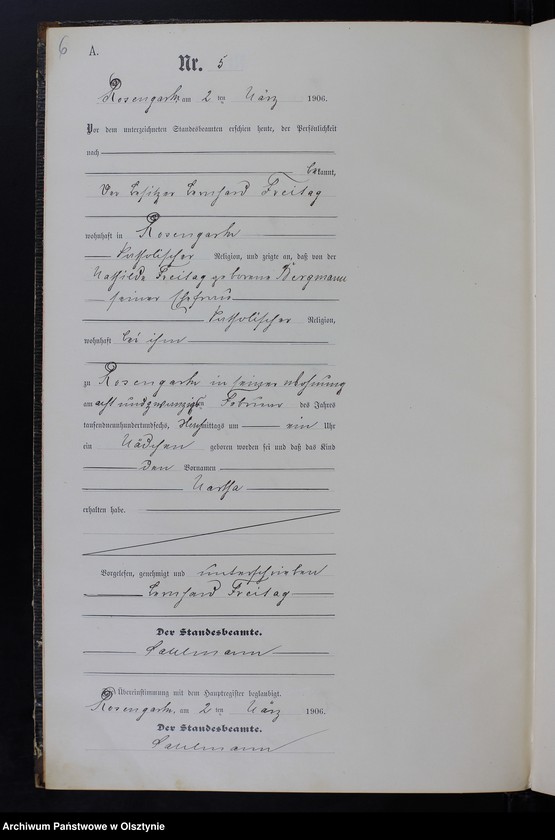 6
A.
Nr. 5
Rosengarth am 2 ten März 1906.
Vor dem unterzeichneten Standesbeamten erschien heute, der Persönlichkeit
nach
bekannt,
Der Besitzer Bernhard Freitag
wohnhaft in Rosengarth
katholischer Religion, und zeigte an, daß von der
Mathilde Freitag geborene Bergmann
seiner Ehefrau
katholischer Religion,
wohnhaft bei ihm
zu Rosengarth in seiner Wohnung
am acht und zwanzigsten Februar des Jahres
tausendneunhundertundsechs, mittags um ein Uhr
ein Mädchen geboren worden sei und daß das Kind
den Vornamen
Martha
erhalten habe.
Vorgelesen, genehmigt und unterschrieben
Bernhard Freitag
Der Standesbeamte.
Übereinstimmung mit dem Hauptregister beglaubigt.
Rosengarth, am 2 ten März 1906.
Der Standesbeamte.
Archiwum Państwowe w Olsztynie